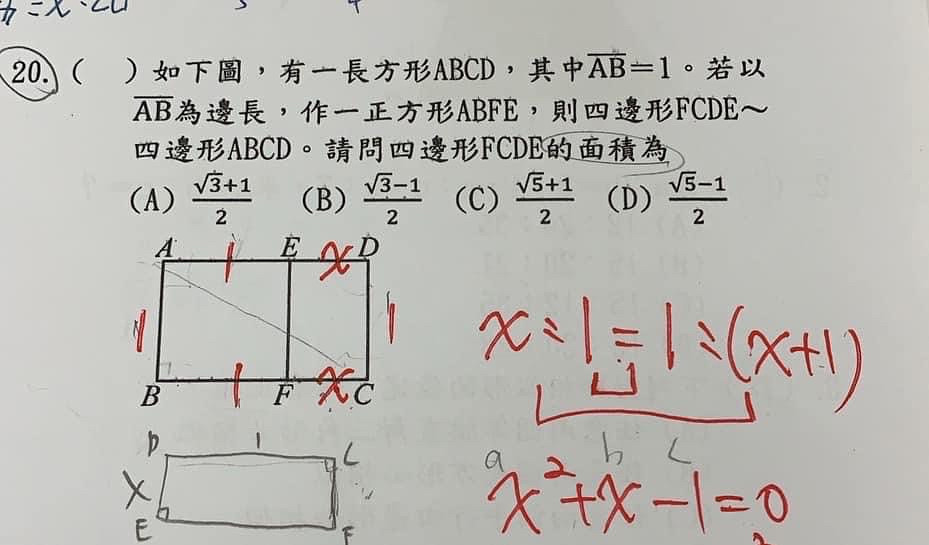 20. ( ) 如下圖，有一長方形ABCD，其中AB=1。若以
AB為邊長，作一正方形ABFE，則四邊形FCDE～
四邊形ABCD。請問四邊形FCDE的面積為
(A) (√3+1)/2 (B) (√3-1)/2 (C) (√5+1)/2 (D) (√5-1)/2
A 1 E x D
1 1
B 1 F x C
x:1=1:(x+1)
D 1 C
x
E F
a b c
x²+x-1=0